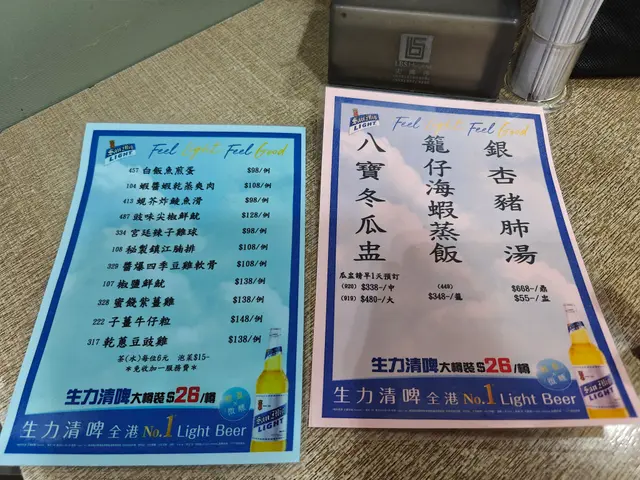 SAN MIG
LIGHT
Feel Light Feel Good
457 白飯魚煎蛋 $98/例
104 蝦醬蝦乾蒸爽肉 $108/例
413 規芥炸鯪魚滑 $98/例
487 豉味尖椒鮮魷 $128/例
334 宮廷辣子雞球 $98/例
108 秘製鎮江腩排 $108/例
329 醬爆四季豆雞軟骨 $108/例
107 椒鹽鮮魷 $138/例
328 蜜餞紫薑雞 $138/例
222 子薑牛仔粒 $148/例
317 乾蔥豆豉雞 $138/例
茶(水)每位6元 泡菜$15-
*免收加一服務費*
生力清啤大樽裝$26/樽
生力清啤全港No.1 Light Beer
SAN MIG
LIGHT
Feel Light Feel Good
八寶冬瓜盅
瓜盅請早1天預訂
(920) $338-/中
(919) $480-/大
籠仔海蝦蒸飯
(448)
$348-/籠
銀杏豬肺湯
$668-/鼎
$55-/盅
生力清啤大樽裝$26/樽
生力清啤全港No.1 Light Beer